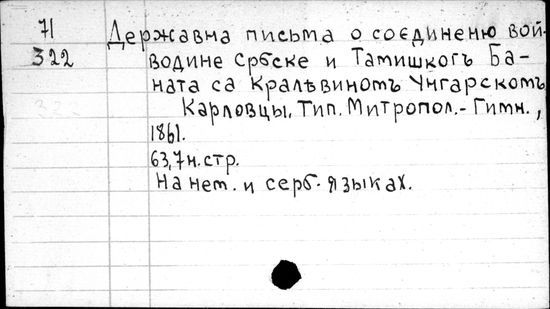 71 Државна писъма о соєдиненю вой-
322 водине Србске и Тамишкогъ Ба-
ната са Кралѣвиномъ Унгарскомъ
Карловцы. Тип. Митропол.-Гимн.,
1861.
63,7н.стр.
На нем. и серб. языках.